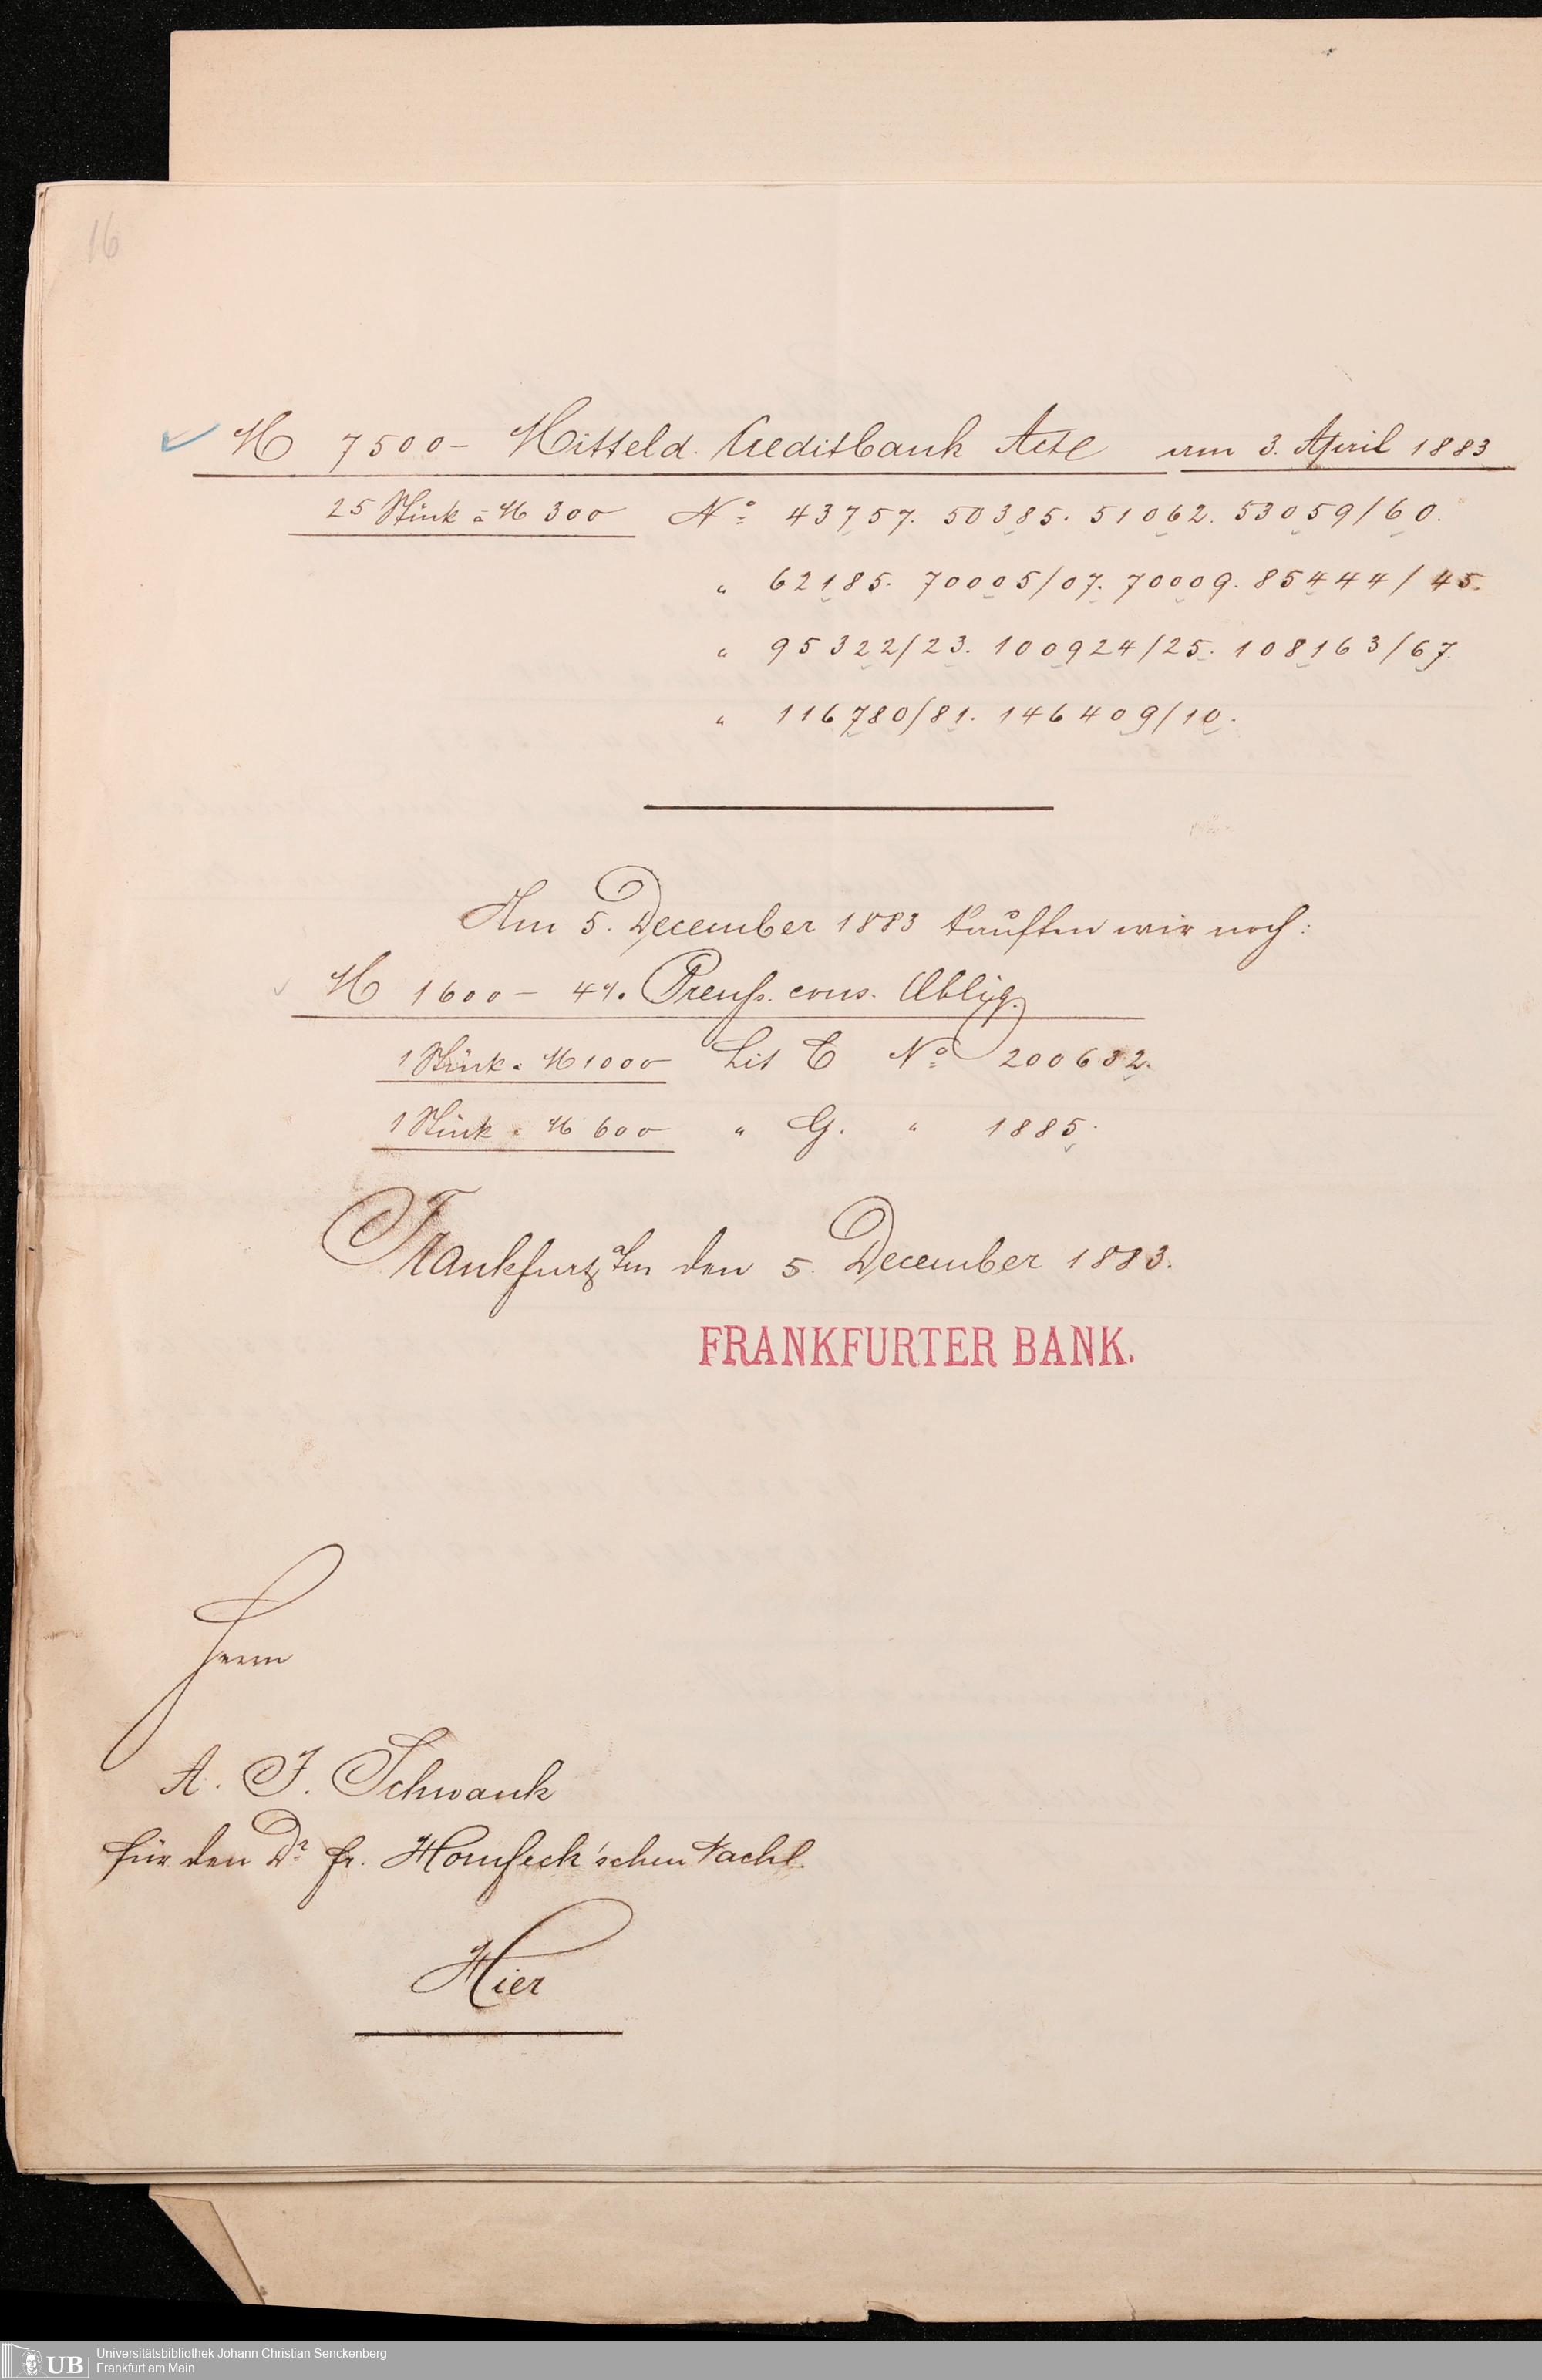 16
M 7500 - Mitteld. Creditbank Acte am 3. April 1883
25 Stück à M 300 No 43757. 50385. 51062. 53059/60.
" 62185. 70005/07. 70009. 85444/45.
" 95322/23. 100924/25. 108163/67.
" 116780/81. 146409/10.
Am 5. December 1883 kauften wir noch:
M 1600 - 4% Preuß. cons. Oblig.
1 Stück à M 1000 Lit E No 200682.
1 Stück à M 600 " G. " 1885.
Frankfurt a/m den 5. December 1883.
FRANKFURTER BANK.
Herrn
A. J. Schwank
für den Dr fr. Hornfeck'schen Nachl.
Hier
UB Universitätsbibliothek Johann Christian Senckenberg
Frankfurt am Main